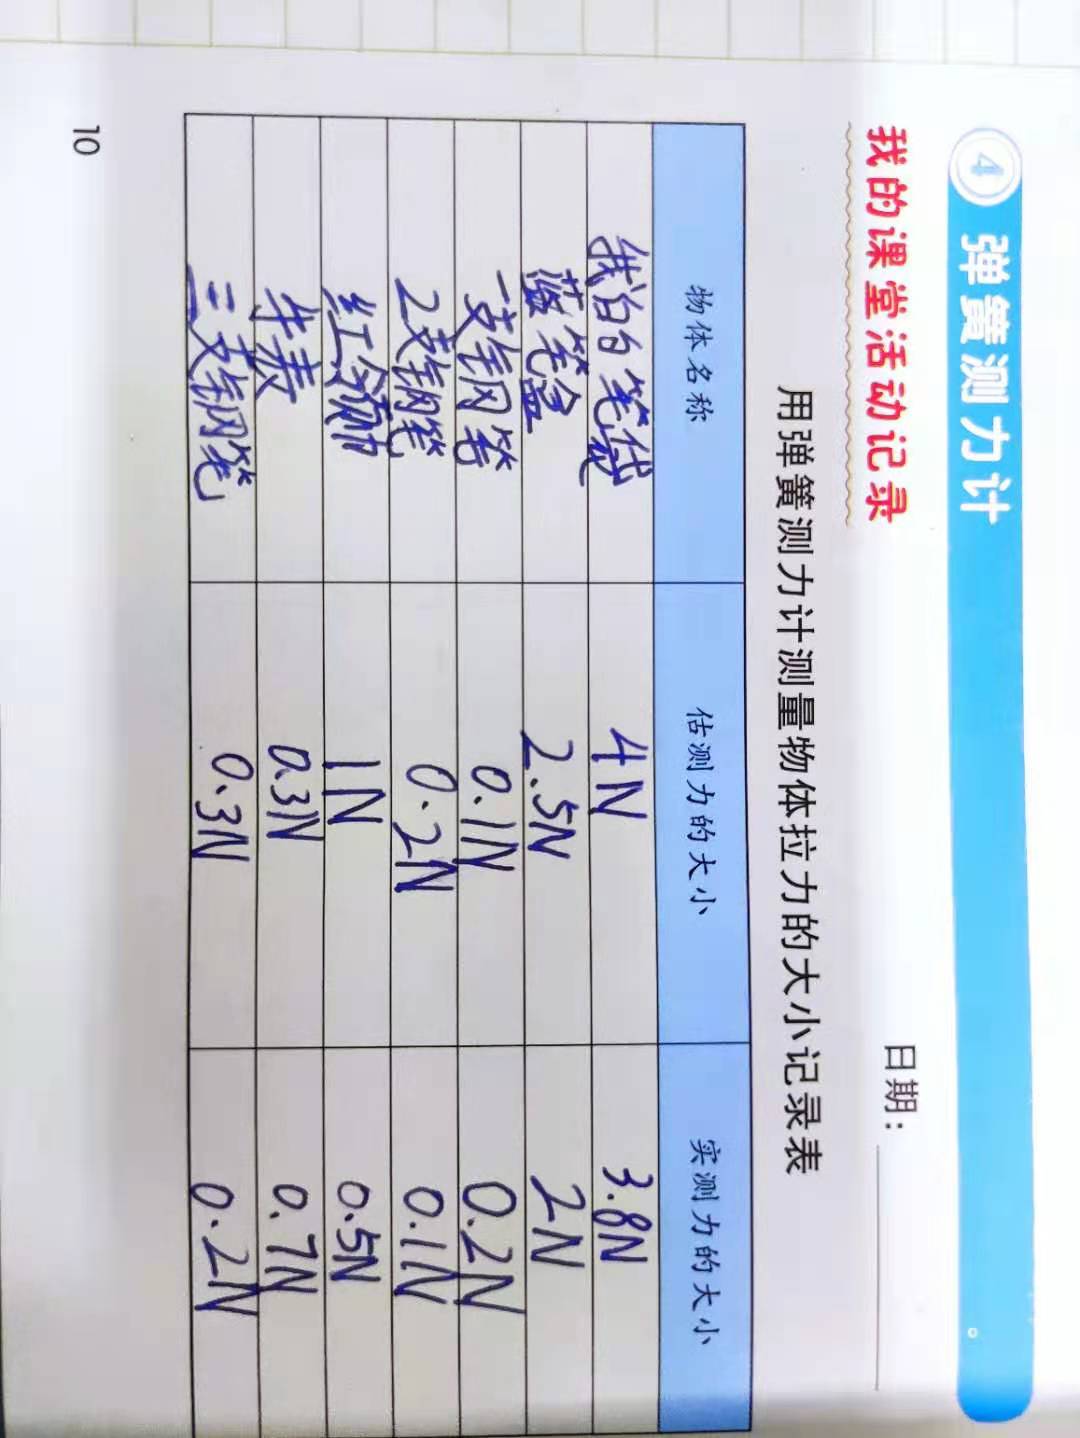 4 弹簧测力计
我的课堂活动记录
日期：
用弹簧测力计测量物体拉力的大小记录表
物体名称 估测力的大小 实测力的大小
我白白笔袋 4N 3.8N
笔盒 2.5N 2N
一支钢笔 0.1N 0.2N
2支钢笔 0.2N 0.1N
红 1N 0.5N
手表 0.3N 0.7N
三支钢笔 0.3N 0.2N
10